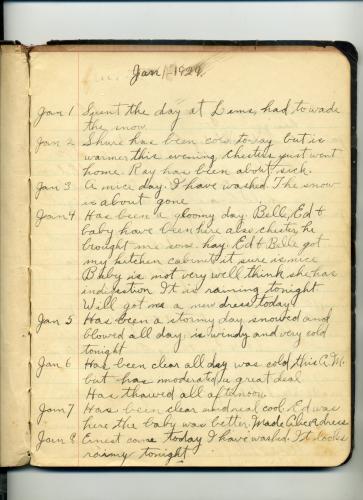 Jan 1 - 1929
Jan 1 Spent the day at Lims, had to wade
the snow
Jan 2 Shure has been cold to day but is
warmer this evening Chesters just went
home. Ray has been about sick.
Jan 3 A nice day. I have washed. The snow
is about gone
Jan 4 Has been a gloomy day. Belle, Ed &
baby have been here also chester he
brought me some hay. Ed & Belle got
my kitchen cabinet it sure is nice
Baby is not very well think she has
indigestion It is raining tonight
Will got me a new dress today
Jan 5 Has been a stormy day snowed and
blowed all day, is windy and very cold
tonight
Jan 6 Has been clear all day was cold this A.M.
but has moderated a great deal
Has thawed all afternoon
Jan 7 Has been clear and real cool Ed was
here the baby was better. Made Alice dress
Jan 8 Ernest came today I have washed. It looks
rainy tonight